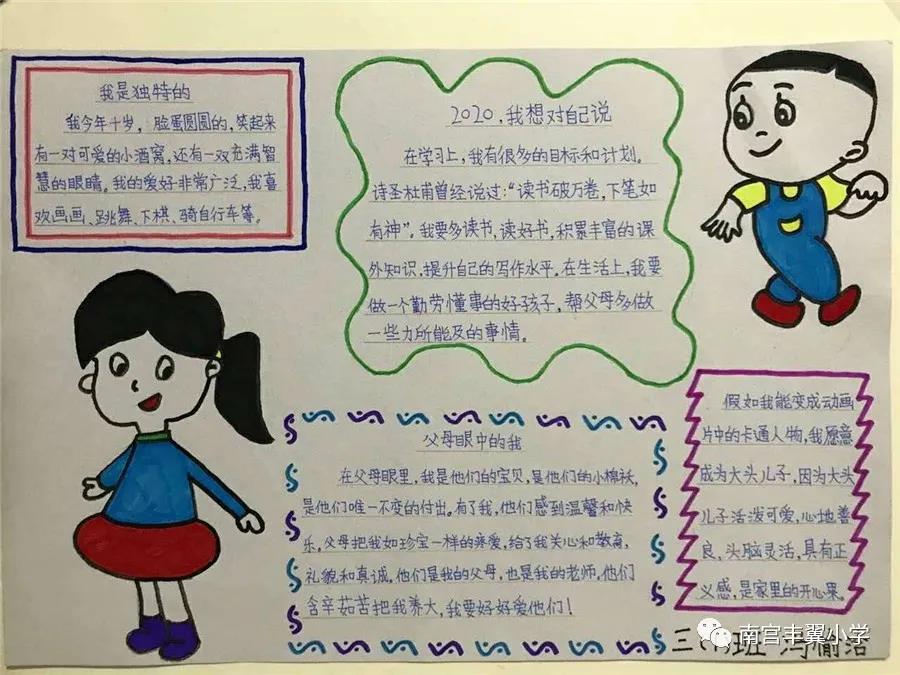 我是独特的
我今年十岁，脸蛋圆圆的，笑起来
有一对可爱的小酒窝，还有一双充满智
慧的眼睛。我的爱好非常广泛，我喜
欢画画、跳舞、下棋、骑自行车等。
2020，我想对自己说
在学习上，我有很多的目标和计划。
诗圣杜甫曾经说过：“读书破万卷，下笔如
有神”。我要多读书，读好书，积累丰富的课
外知识，提升自己的写作水平。在生活上，我要
做一个勤劳懂事的好孩子，帮父母多做
一些力所能及的事情。
父母眼中的我
在父母眼里，我是他们的宝贝，是他们的小棉袄，
是他们唯一不变的付出。有了我，他们感到温馨和快
乐。父母把我如珍宝一样的疼爱，给了我关心和教育，
礼貌和真诚。他们是我的父母，也是我的老师，他们
含辛茹苦把我养大，我要好好爱他们！
假如我能变成动画
片中的卡通人物，我愿意
成为大头儿子，因为大头
儿子活泼可爱，心地善
良、头脑灵活，具有正
义感，是家里的开心果。
南宫丰翼小学
班